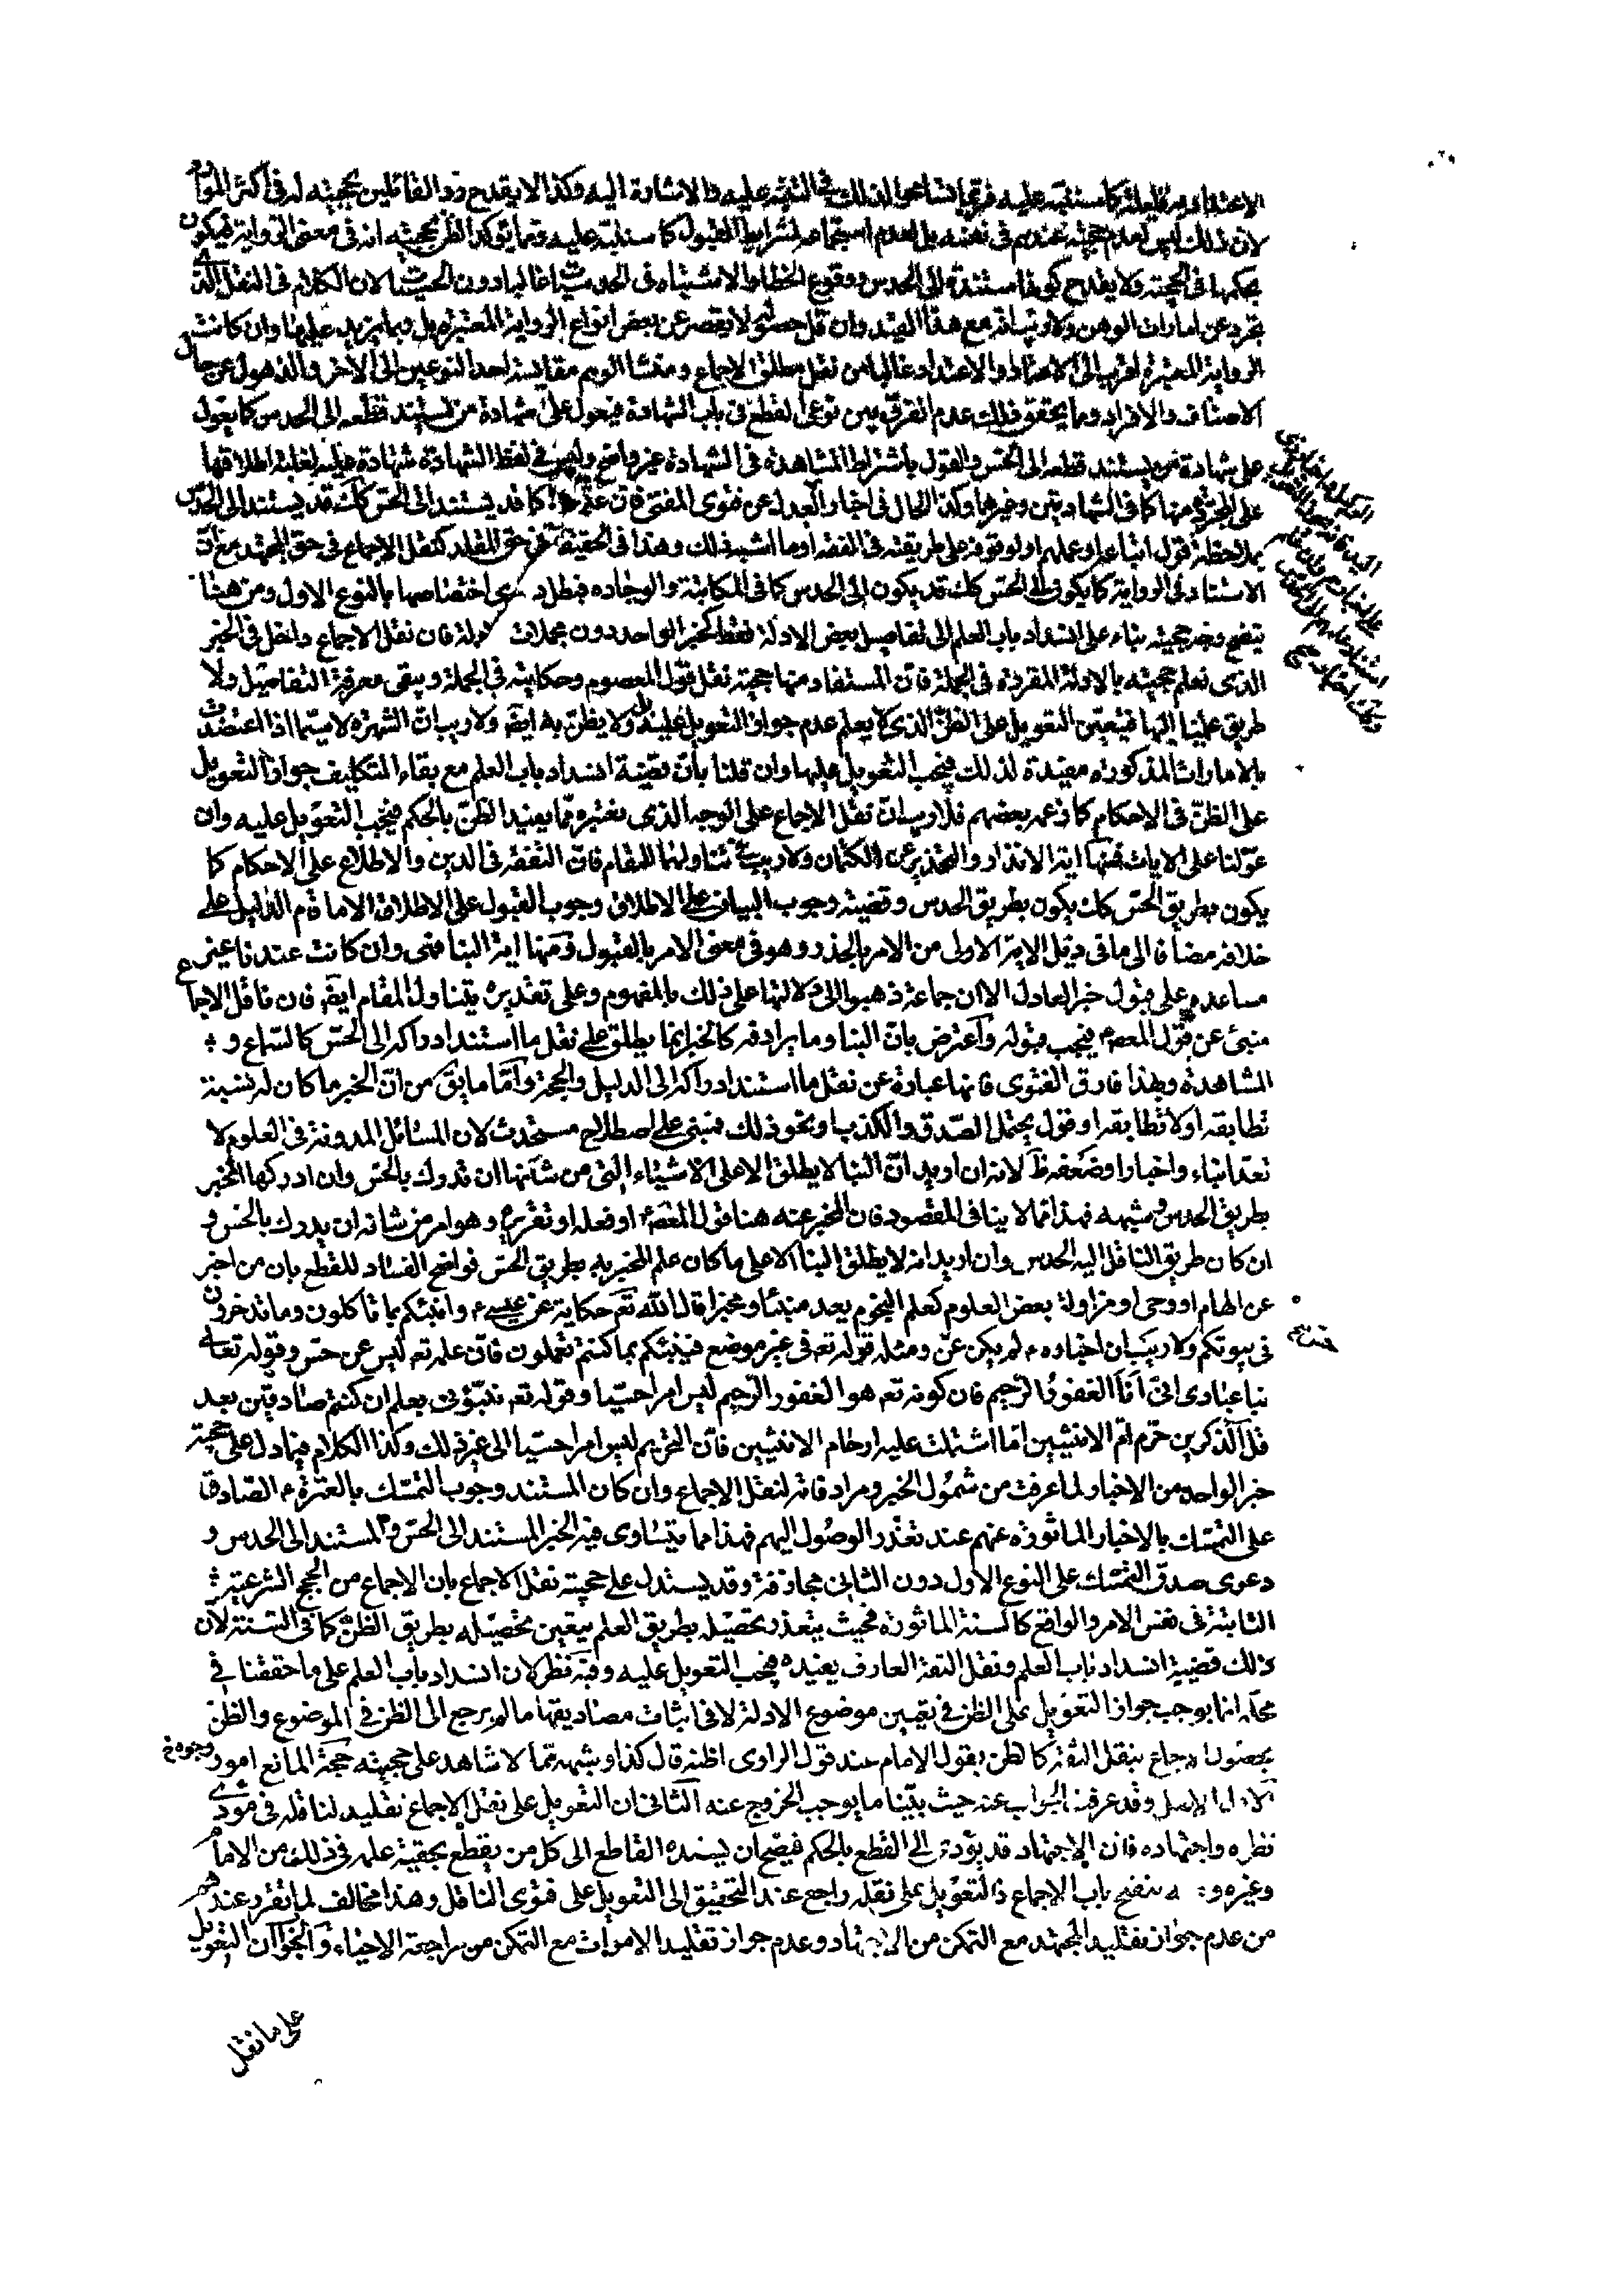 لان ذلك ليس لعدم حجيته عندهم في نفسه بل لعدم استجماعه لشرايط القبول كما سننبّه عليه ومما يؤكد القول بحجيته انه في معنى الرواية فيكون
بحكمها في الحجية ولا يقدح كونها مستندة الى الحدس ووقوع الخطا والاشتباه في الحدسيات غالبا دون الحسيات لان الكلام في النقل الذي
تجرد عن امارات الوهن ولا ريب انه مع هذا القيد وان قل حصوله لا يقصر عن بعض انواع الرواية المعتبرة بل ربما يزيد عليها وان كانت
الرواية المعتبرة اقرب الى الاعتماد والاعتداد غالبا من نقل مطلق الاجماع ومنشأ الوهم مقايسة احد النوعين الى الاخر والذهول عن حال
الاصناف والافراد ومما يحقق ذلك عدم الفرق بين نوعي القطع في باب الشهادة فيعول على شهادة من يستند قطعه الى الحدس كما يعول
على شهادة من يستند قطعه الى الحس والقول باشتراط المشاهدة في الشهادة غير واضح وليس في لفظ الشهادة شهادة عليه لغلبة اطلاقها
على المجرد منها كما في الشهادتين وغيرهما وكذا الحال في اخبار العدل عن فتوى المفتي فان علمه كما قد يستند الى الحس كك قد يستند الى الحدس
بملاحظة قول اتباعه او عملهم او لوقوفه على طريقته في الفقه او ما اشبه ذلك وهذا في الحقيقة في حق المقلد كنقل الاجماع في حق المجتهد مع ان
الاستناد في الرواية كما يكون الى الحس كك قد يكون الى الحدس كما في المكاتبة والوجادة فبطل دعوى اختصاصها بالنوع الاول ومن هنا
يتضح وجه حجيته بناء على انسداد باب العلم الى تفاصيل بعض الادلة فقط كخبر الواحد دون مجملات الادلة فان نقل الاجماع داخل في الخبر
الذي نعلم حجيته بالادلة المقررة في الجملة فان المستفاد منها حجية نقل قول المعصوم وحكايته في الجملة ويبقى معرفة التفاصيل ولا
طريق علميا اليها فيتعين التعويل على الظن الذي لا يعلم عدم جواز التعويل عليه ولا يظن به ايضا ولا ريب ان الشهرة لا سيما اذا اعتضدت
بالامارات المذكورة مفيدة لذلك فيجب التعويل عليها وان قلنا بأن قضية انسداد باب العلم مع بقاء التكليف جواز التعويل
على الظن في الاحكام كما زعمه بعضهم فلا ريب ان نقل الاجماع على الوجه الذي نعتبره مما يفيد الظن بالحكم فيجب التعويل عليه وان
عولنا على الايات فمنها آية الانذار والتحذير عن الكتمان ولا ريب في تناولهما للمقام فان التفقه في الدين والاطلاع على الاحكام كما
يكون بطريق الحس كك يكون بطريق الحدس وقضية وجوب البيان على الاطلاق وجوب القبول على الاطلاق الا ما قام الدليل على
خلافه مضافا الى ما في ذيل الاية الاولى من الامر بالحذر وهو في معنى الامر بالقبول ومنها اية النبا فهى وان كانت عندنا غير
مساعدة على قبول خبر العادل الا ان جماعة ذهبوا الى دلالتها على ذلك بالمفهوم وعلى تقديره يتناول المقام ايضا فان ناقل الاجماع
منبئ عن قول المعصوم فيجب قبوله واعترض بان النبا وما يرادفه كالخبر انما يطلق على نقل ما استند ادراكه الى الحس كالسماع و
المشاهدة وبهذا فارق الفتوى فانها عبارة عن نقل ما استند ادراكه الى الدليل والحجة واما ما يق من ان الخبر ما كان لنسبته
تطابقه او لا تطابقه او قول يحتمل الصدق والكذب او نحو ذلك فمبنى على اصطلاح مستحدث لان المسائل المدونة في العلوم لا
تعد انباء واخبارا وضعفه ظ لانه ان اريد ان النبا لا يطلق الا على الاشياء التي من شأنها ان تدرك بالحس وان ادركها المخبر
بطريق الحدس وشبهه فهذا مما لا ينافي المقصود فان المخبر عنه هنا قول المعصوم او فعله او تقريره وهو امر من شانه ان يدرك بالحس و
ان كان طريق الناقل اليه الحدس وان اريد انه لا يطلق النبا الا على ما كان علم المخبر به بطريق الحس فواضح الفساد للقطع بان من اخبر
عن الهام او وحى او مزاولة بعض العلوم كعلم النجوم يعد منبئا ومخبرا قال الله تع حكاية عن عيسى ع وانبئكم بما تاكلون وما تدخرون
في بيوتكم ولا ريب ان اخباره ع لم يكن عن ومثله قوله تع في غير موضع فينبئكم بما كنتم تعملون فان علمه تع ليس عن حس وقوله تعالى
نبا عبادى اني انا الغفور الرحيم فان كونه تع هو الغفور الرحيم ليس امرا حسيا وقوله تع نبئوني بعلم ان كنتم صادقين بعد
قل آلذكرين حرم ام الانثيين اما اشتملت عليه ارحام الانثيين فان التحريم ليس امرا حسيا الى غير ذلك وكذا الكلام فيما دل على حجية
خبر الواحد من الاخبار لما عرفت من شمول الخبر ومرادفاته لنقل الاجماع وان كان المستند وجوب التمسك بالعترة ع الصادق
على التمسك بالاخبار الماثورة عنهم عند تعذر الوصول اليهم فهذا مما يتساوى فيه الخبر المستند الى الحس والمستند الى الحدس و
دعوى صدق التمسك على النوع الاول دون الثاني مجازفة وقد يستدل على حجية نقل الاجماع بان الاجماع من الحجج الشرعية
الثابتة في نفس الامر والواقع كالسنة الماثورة فحيث يتعذر تحصيله بطريق العلم يتعين تحصيله بطريق الظن كما في السنة لان
ذلك قضية انسداد باب العلم ونقل الثقة العارف يفيده فيجب التعويل عليه وفيه نظر لان انسداد باب العلم على ما حققنا في
محله انما يوجب جواز التعويل على الظن في تعيين موضوع الادلة لا في اثبات مصاديقها ما لم يرجع الى الظن في الموضوع والظن
بحصول الاجماع بنقل الثقة كالظن بقول الامام عند قول الراوى اظنه قال كذا وشبهه مما لا شاهد على حجيته حجة المانع امور
الاول الاصل وقد عرفت الجواب عنه حيث بينا ما يوجب الخروج عنه الثاني ان التعويل على نقل الاجماع تقليد لناقله في مؤدى
نظره واجتهاده فان الاجتهاد قد يؤدى الى القطع بالحكم فيصح ان يسنده القاطع الى كل من يقطع بحقية علمه في ذلك من الامام
وغيره و ينفتح باب الاجماع فالتعويل على نقله راجع عند التحقيق الى التعويل على فتوى الناقل وهذا مخالف لما تقرر عندهم
من عدم جواز تقليد المجتهد مع التمكن من الاجتهاد وعدم جواز تقليد الاموات مع التمكن من مراجعة الاحياء والجواب ان التعويل
على ما نقل